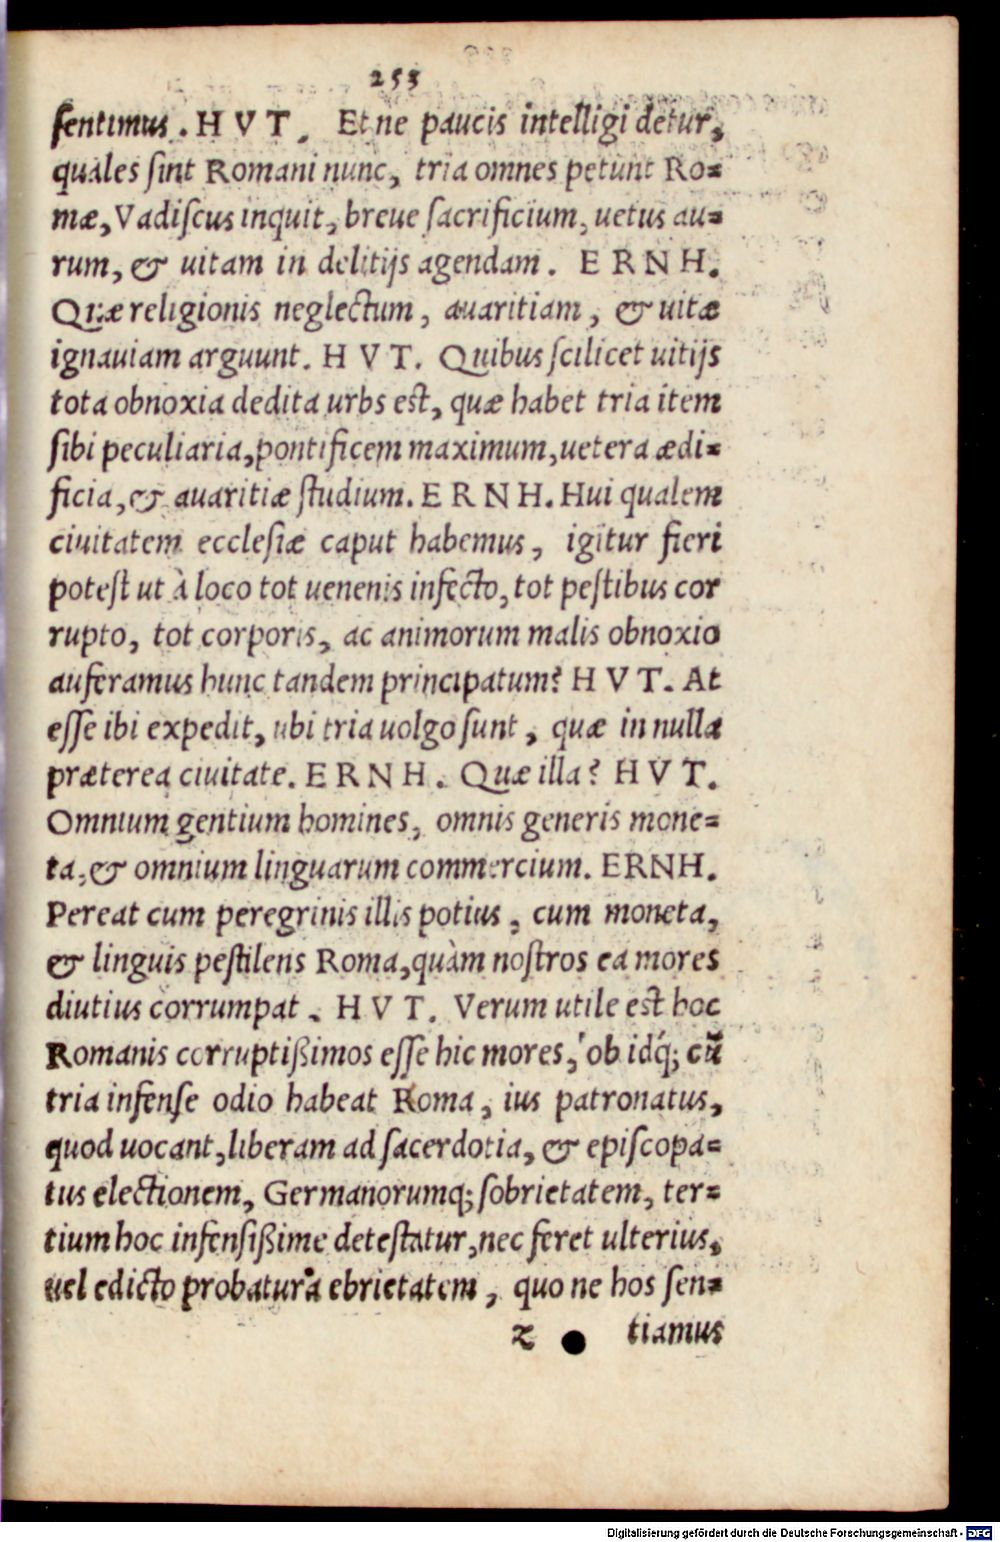 253
ſentimus. H V T. Et ne paucis intelligi detur,
quales ſint Romani nunc, tria omnes petunt Ro=
mæ, Vadiſcus inquit, breue ſacrificium, uetus au=
rum, & uitam in delitijs agendam. E R N H.
Quæ religionis neglectum, auaritiam, & uitæ
ignauiam arguunt. H V T. Quibus ſcilicet uitijs
tota obnoxia dedita urbs est, quæ habet tria item
ſibi peculiaria, pontificem maximum, uetera ædi=
ficia, & auaritiæ ſtudium. E R N H. Hui qualem
ciuitatem eccleſiæ caput habemus, igitur fieri
poteſt ut à loco tot uenenis infecto, tot peſtibus cor
rupto, tot corporis, ac animorum malis obnoxio
auferamus hunc tandem principatum? H V T. At
eſſe ibi expedit, ubi tria uolgo ſunt, quæ in nulla
præterea ciuitate. E R N H. Quæ illa? H V T.
Omnium gentium homines, omnis generis mone=
ta, & omnium linguarum commercium. ERNH.
Pereat cum peregrinis illis potius, cum moneta,
& linguis peſtilens Roma, quàm noſtros ea mores
diutius corrumpat. H V T. Verum utile est hoc
Romanis corruptißimos eſſe hic mores, ob idq́; cũ
tria infenſe odio habeat Roma, ius patronatus,
quod uocant, liberam ad ſacerdotia, & epiſcopa=
tus electionem, Germanorumq; ſobrietatem, ter=
tium hoc infenſißime deteſtatur, nec feret ulterius,
uel edicto probatura ebrietatem, quo ne hos ſen=
z tiamus
Digitalisierung gefördert durch die Deutsche Forschungsgemeinschaft - DFG